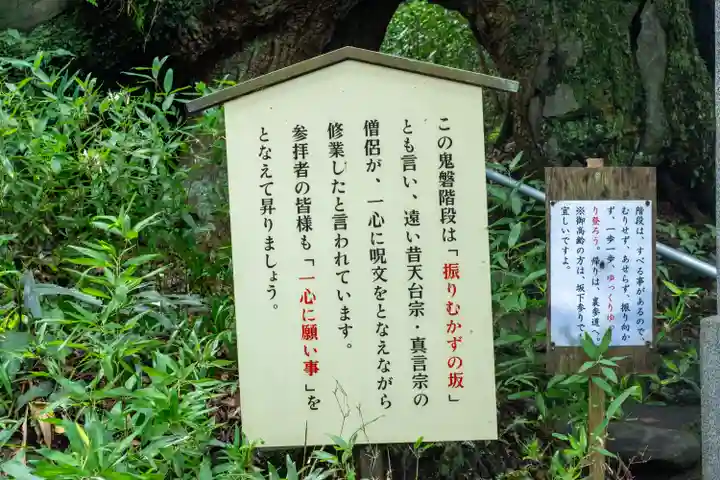 この鬼磐階段は「振りむかずの坂」
とも言い、遠い昔天台宗・真言宗の
僧侶が、一心に呪文をとなえながら
修業したと言われています。
参拝者の皆様も「一心に願い事」を
となえて昇りましょう。
階段は、すべる事があるので、
むりせず、あせらず、振り向か
ず、一歩一歩、ゆっくりゆ
り登ろう。帰りは、裏参道へ。
※御高齢の方は、坂下参りで
宜しいですよ。